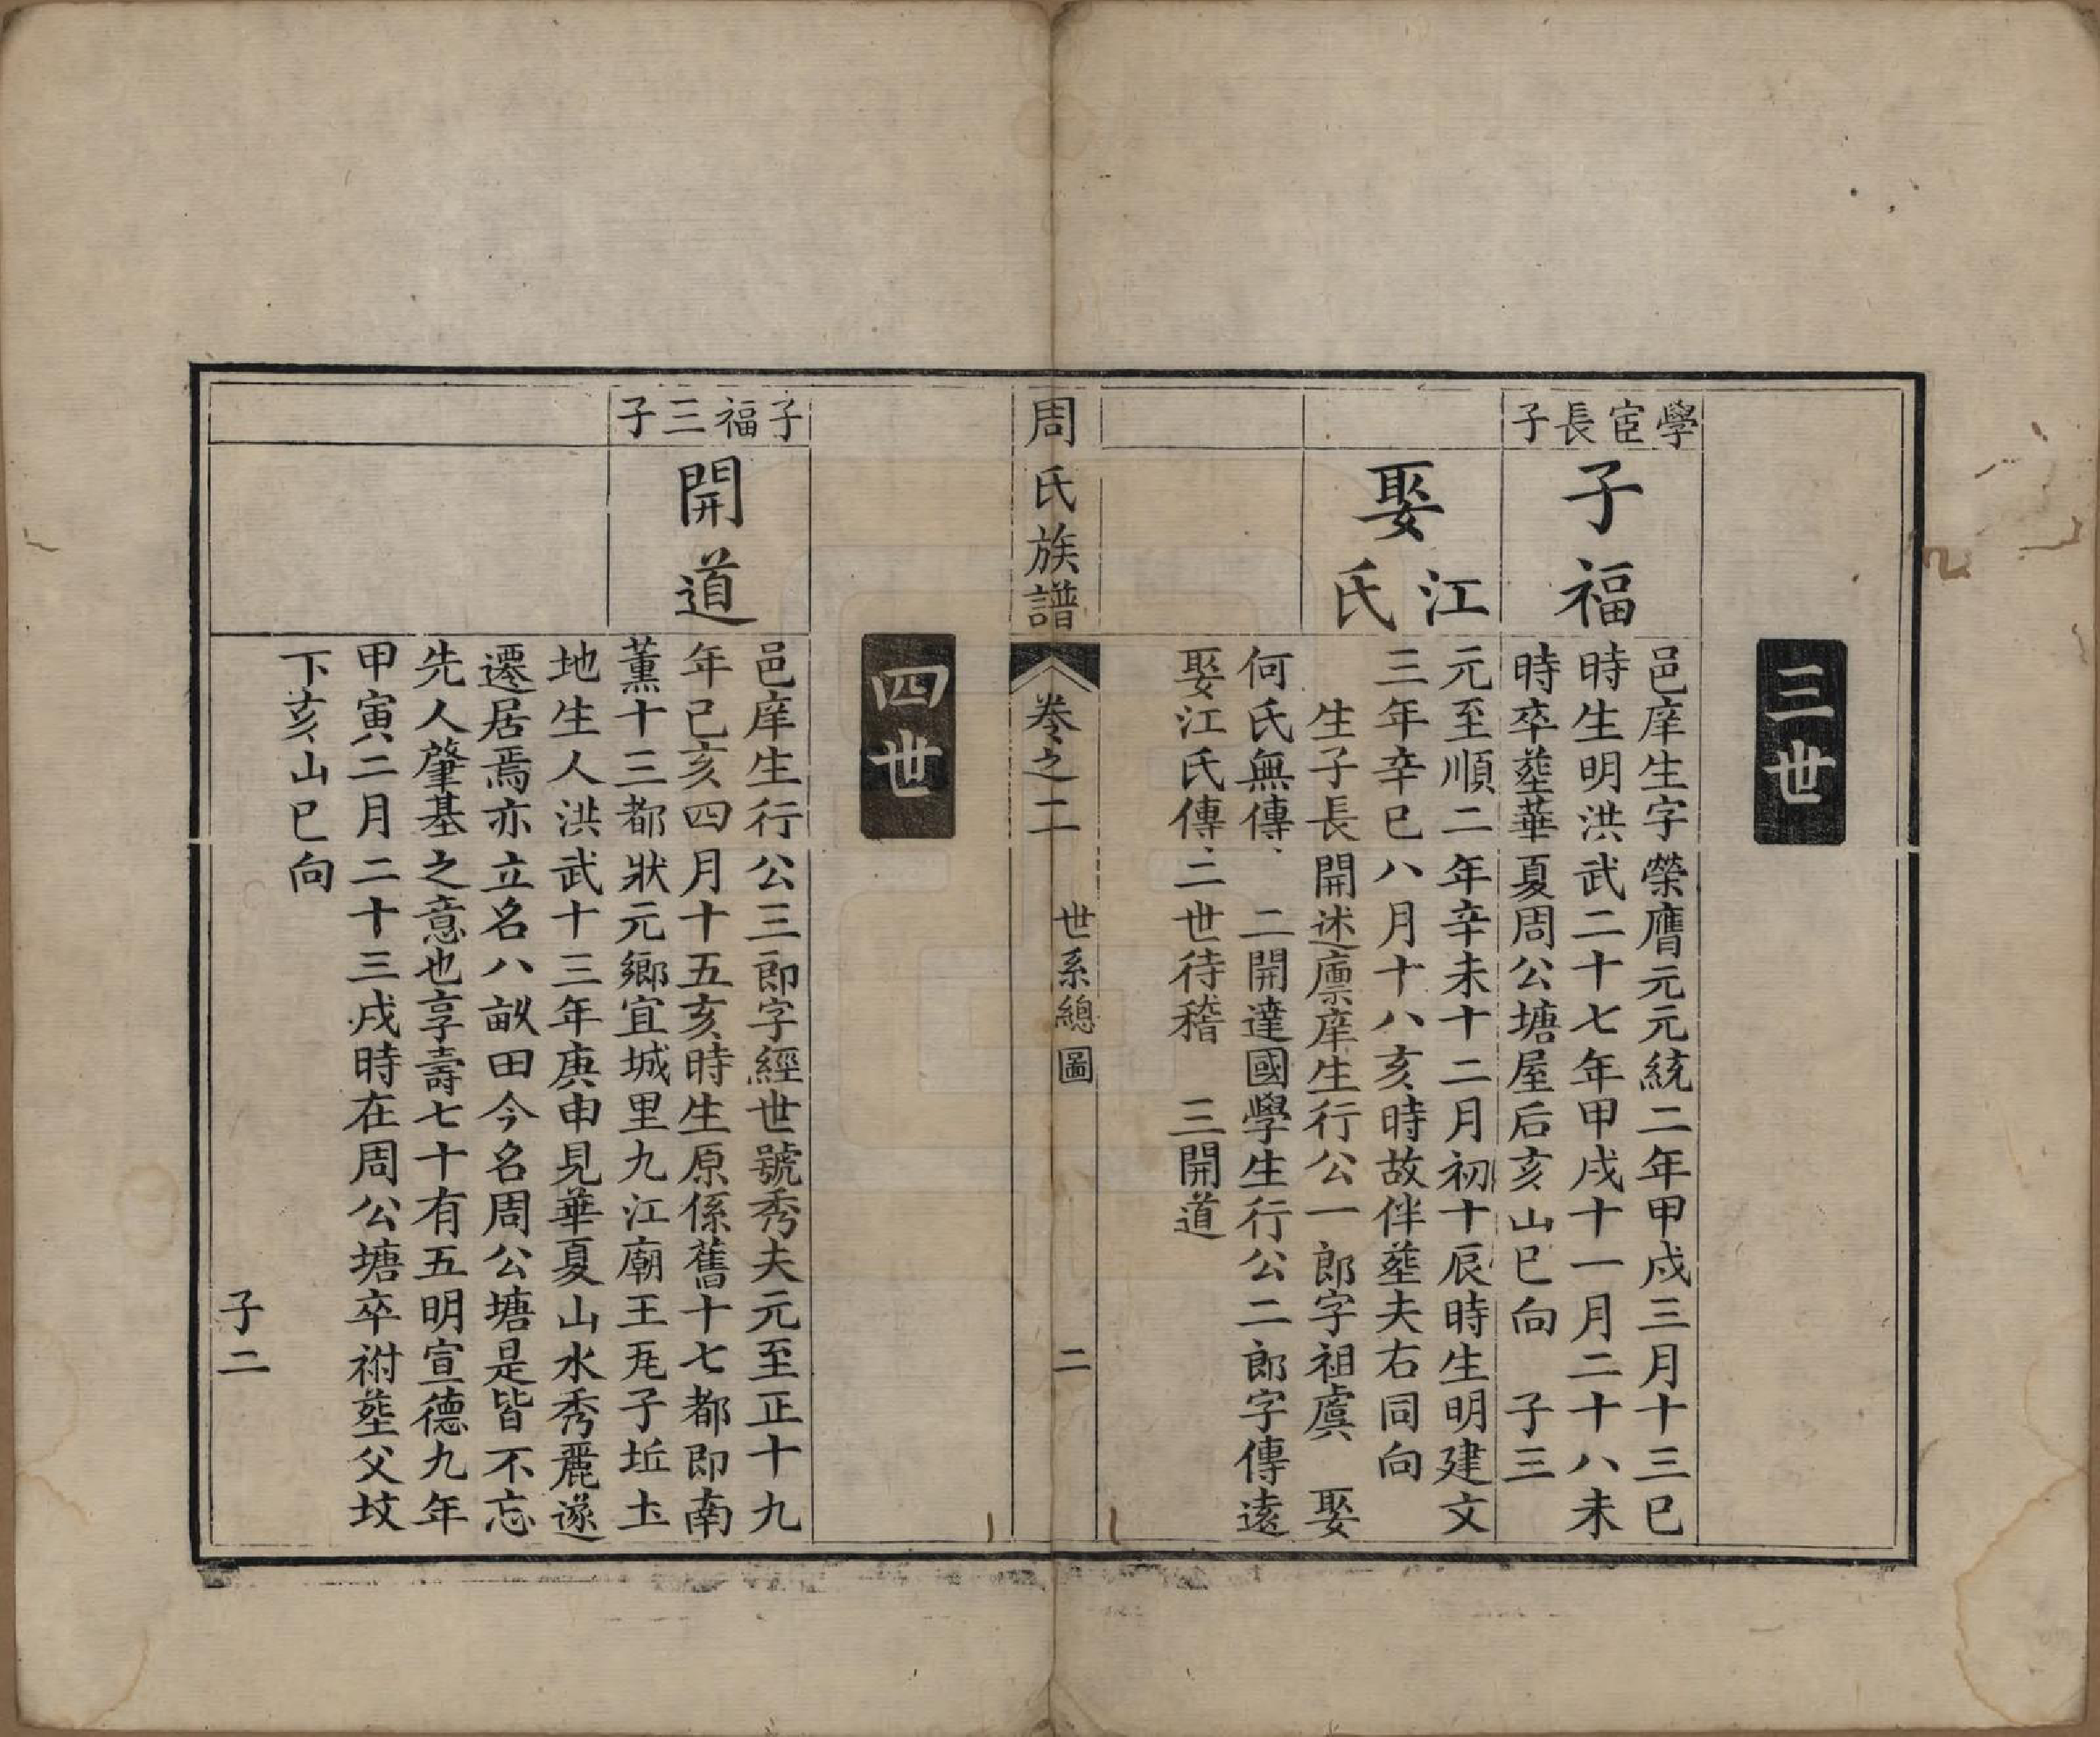 三世
學宦長子
子福
邑庠生字榮膺元元統二年甲戌三月十三巳
時生明洪武二十七年甲戌十一月二十八未
時卒塟華夏周公塘屋后亥山巳向　子三
娶江氏
元至順二年辛未十二月初十辰時生明建文
三年辛巳八月十八亥時故伴塟夫右同向
生子長開述廪庠生行公一郎字祖虞　娶
何氏無傳　二開達國學生行公二郎字傳遠
娶江氏傳二世待稽　三開道
周氏族譜
卷之二
世系總圖
二
四世
子福三子
開道
邑庠生行公三郎字經世號秀夫元至正十九
年己亥四月十五亥時生原係舊十七都即南
薫十三都狀元鄉宜城里九江廟王旄子坵圡
地生人洪武十三年庚申見華夏山水秀麗遂
遷居焉亦立名八畝田今名周公塘是皆不忘
先人肇基之意也享壽七十有五明宣德九年
甲寅二月二十三戌時在周公塘卒祔塟父坟
下亥山巳向
子二